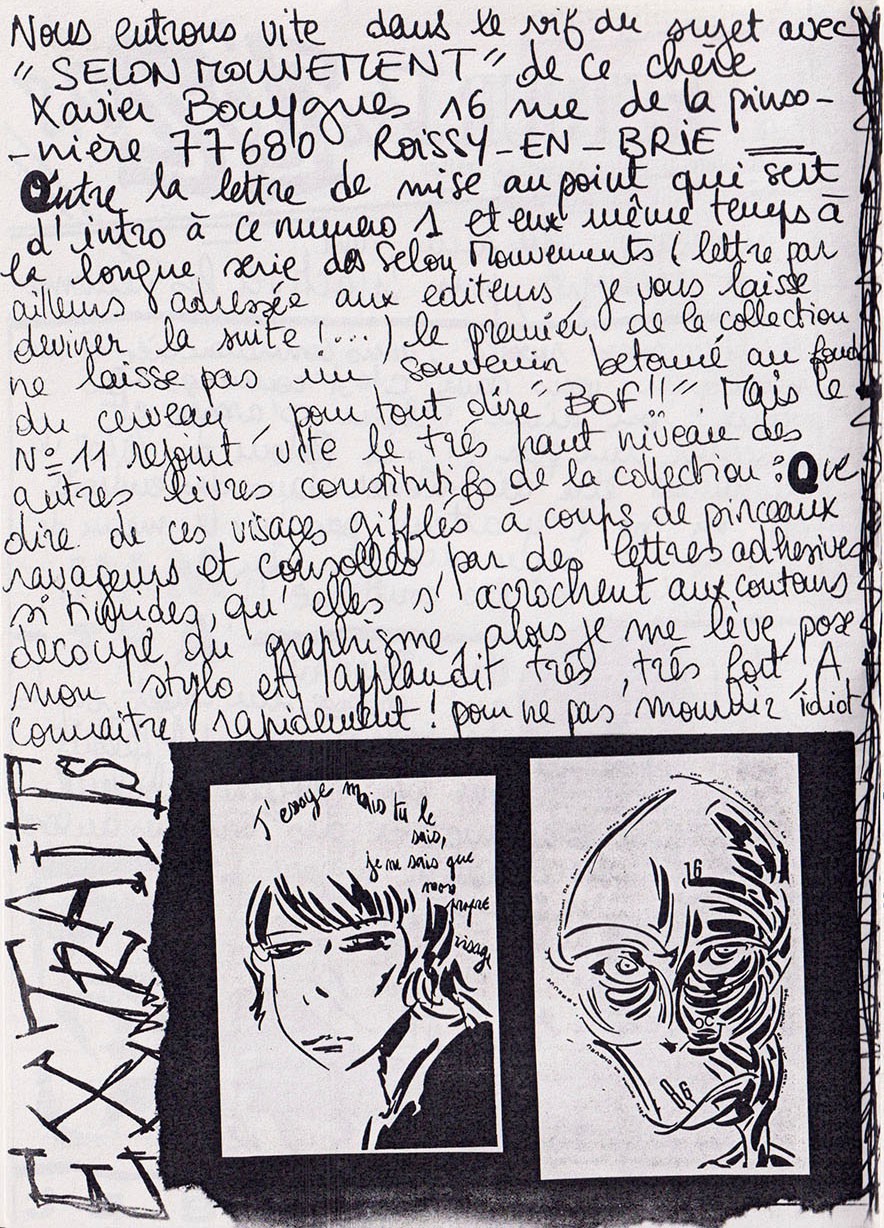 Nous entrons vite dans le vif du sujet avec
" SELON MOUVEMENT " de ce chère
Xavier Bouygues 16 rue de la pinso-
-nière 77680 ROISSY-EN-BRIE —
Outre la lettre de mise au point qui sert
d'intro à ce numero 1 et en même temps à
la longue serie des Selon Mouvements ( lettre par
ailleurs adressée aux editeurs, je vous laisse
deviner la suite !...) le premier de la collection
ne laisse pas un souvenir betonné au fond
du cerveau, pour tout dire " BOF !! ". Mais le
N° 11 rejoint vite le trés haut niveau des
autres livres constitutifs de la collection : Que
dire de ces visages gifflés à coups de pinceaux
ravageurs et consollés par des lettres adhesives
si timides, qu'elles s'acrochent aux contours
decoupé du graphisme, alors je me lève, pose
mon stylo et applaudit trés, trés fort. A
connaitre rapidement ! pour ne pas mourir idiot
EXTRAITS
J'essaye mais tu le
sais,
je ne sais que
mon
propre
visage
16
OCT
86